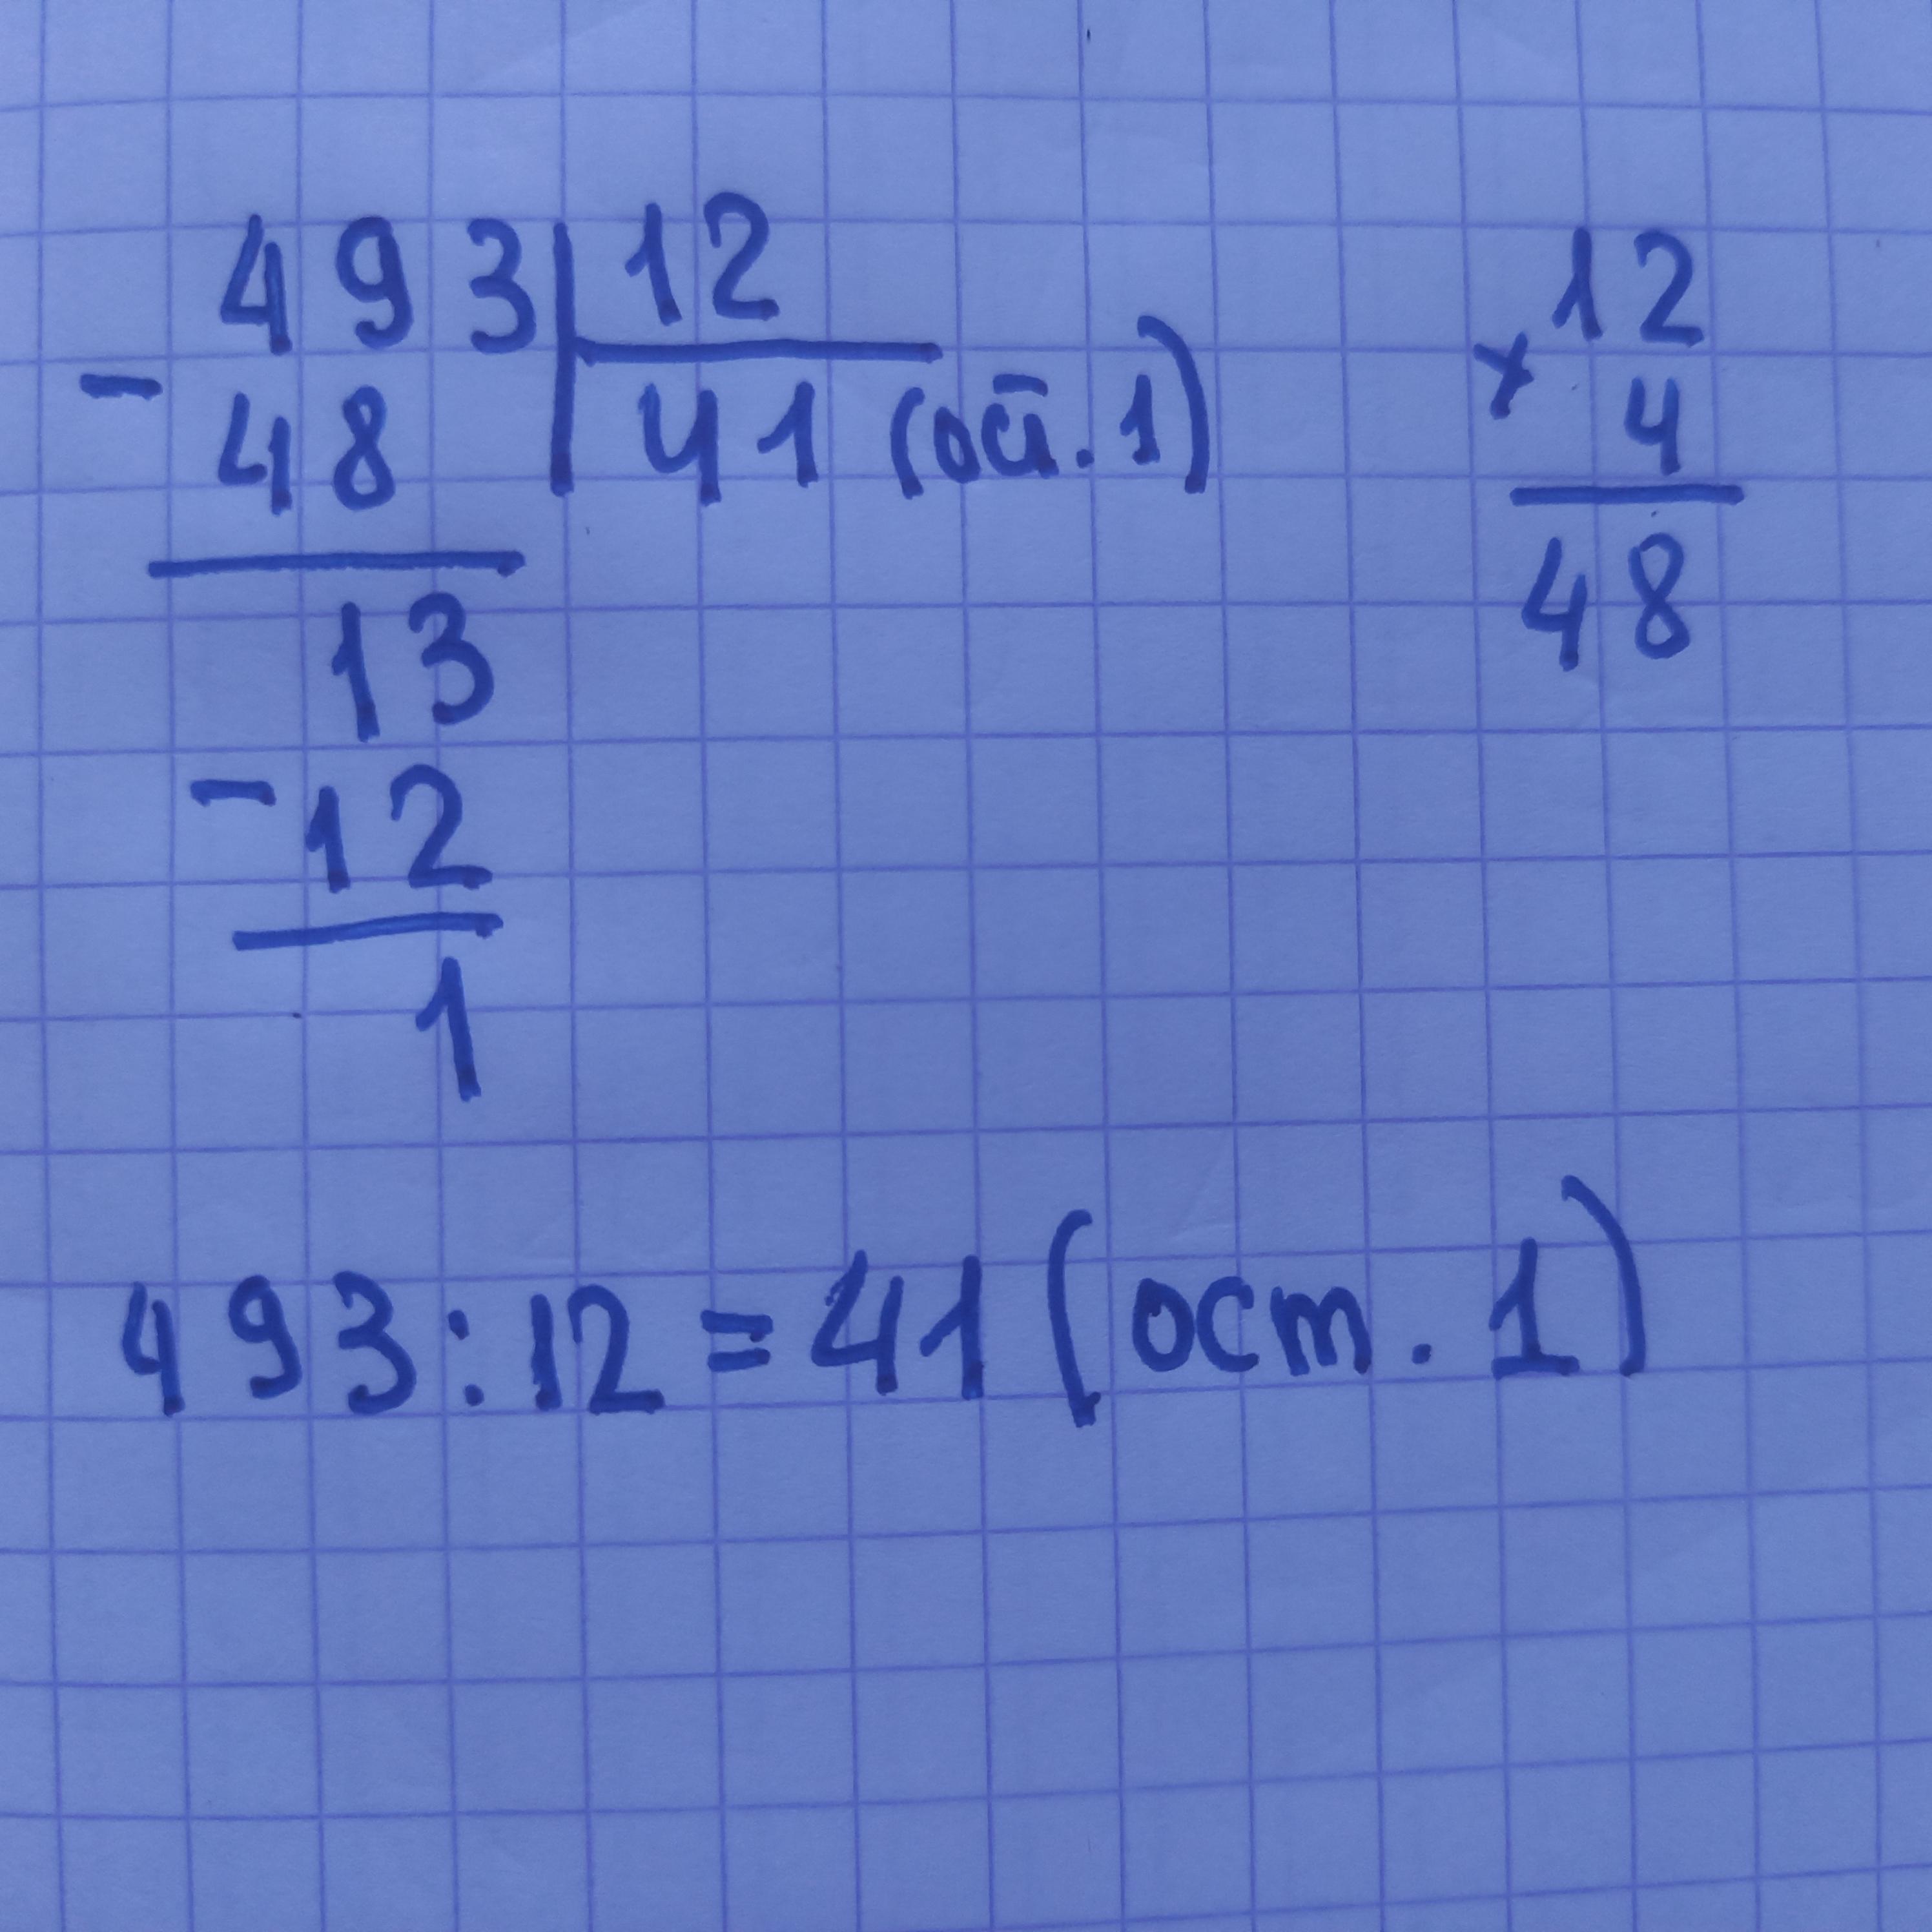 493 12
- 48 41 (ост. 1)
13
- 12
1
12
× 4
48
493 : 12 = 41 (ост. 1)